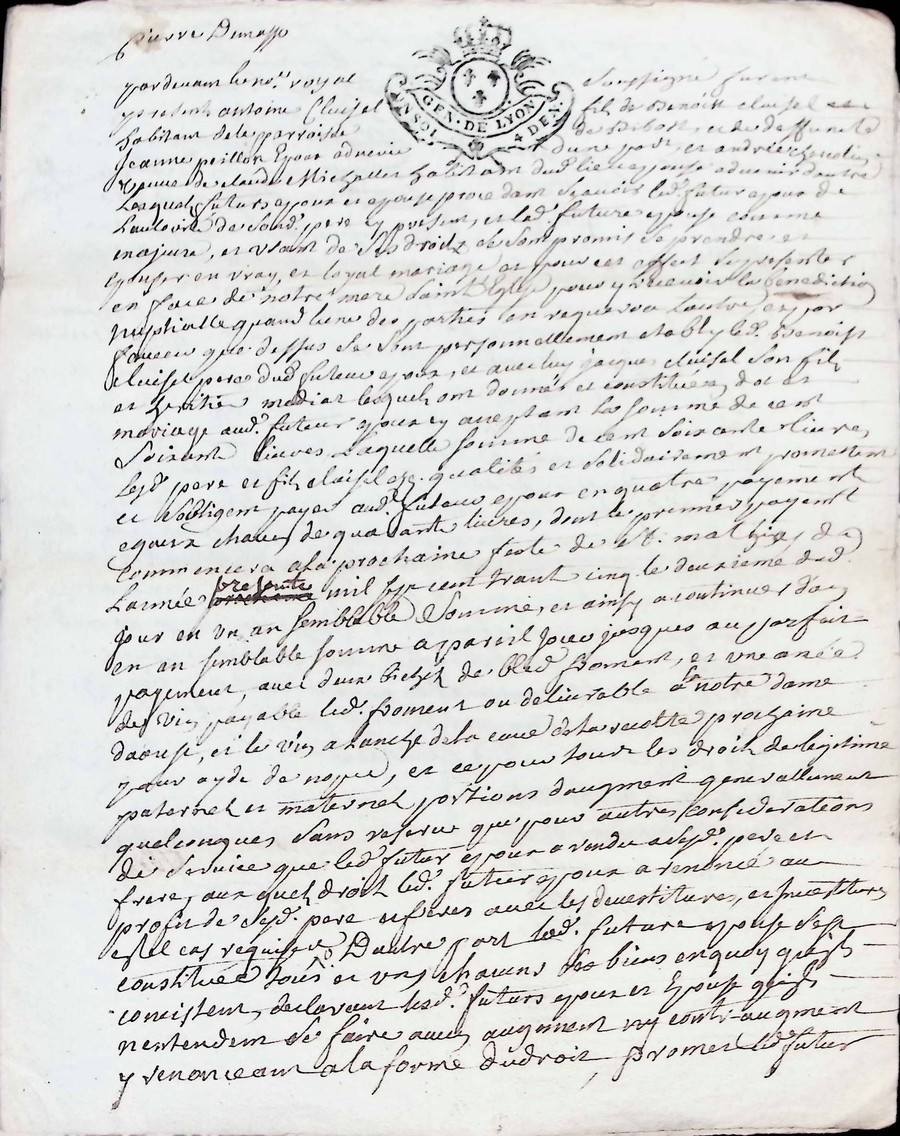 pierre Dumas
pardevant le no.re royal soussigné furent
presents antoine Cluisel fil de Benoist cluisel
habitant de la parroisse de et de deffunete
jeanne poillon Epoux advenir dune part, et andrée
veuve de claude Michallet habitant dud. lieu epouse advenir dautre
Lesquels futurs epoux et epouse procedant Scavoir led. futur epoux de
Lauthorité de Sond. pere y present, et lad. future epouse comme
majure, et usant de Ses droitz se Sont promis Se prendre et
epouser en vray, et loyal mariage et pour cet effect Se presenter
en face de notre mere Sainte Eglise pour y recevoir la benediction
nuptialle quand lune des parties en requerra Lautre, et par
faveur que dessus Se Sont personnellement etably led. Benoist
cluisel pere dud. futur epoux, et avec luy jacques cluisel Son fil
et heritier mediat lesquels ont donnés et constituée, dot et
mariage aud. futur epoux y aceptant la somme de cent
Soixante livres Laquelle Somme de cent Soixante livres
Lesd. pere et fil cluisel qualités et Solidairement promettent
et Sobligent payer aud. futeur epoux en quatre payements
egaux chacun de quarante livres, dont le premier payement
commencera a la prochaine feste de St. mathieu de
Lannée presente prochaine mil sept cent trante cinq le deuxieme dud.
jour en un an semblable Somme, et ainsy a continuer dan
en an semblable somme a pareil jour jusques au parfait
payement, avec deux bichets de bled froment, et une anée
de vin payable led. froment ou delivrable a la notre dame
daoust, et le vin a Lanche de la cuve de la recolte prochaine
pour ayde de nopce, et ce pour tous les droits de legitime
paternel et maternel portions daugment generallement
quelconques Sans reserve que pour autres considerations
de service que led. futur epoux a rendu a sesd. pere et
frere, aux quels droit led. futur epoux a renoncé au
profit de Sesd. pere et freres avec les devestiture, et Investiture
en tel cas requises, Dautre part lad. future epouse Sest
constituée tous et uns chacuns Ses biens en quoy quils
concistent, declarant lesd. futurs epoux et Epouse quils
nentendent Se faire aucun augment ny contr augment
y renonceant a la forme du droit, promet led. futur
GEN. DE LYON
UN SOL 4 DEN.